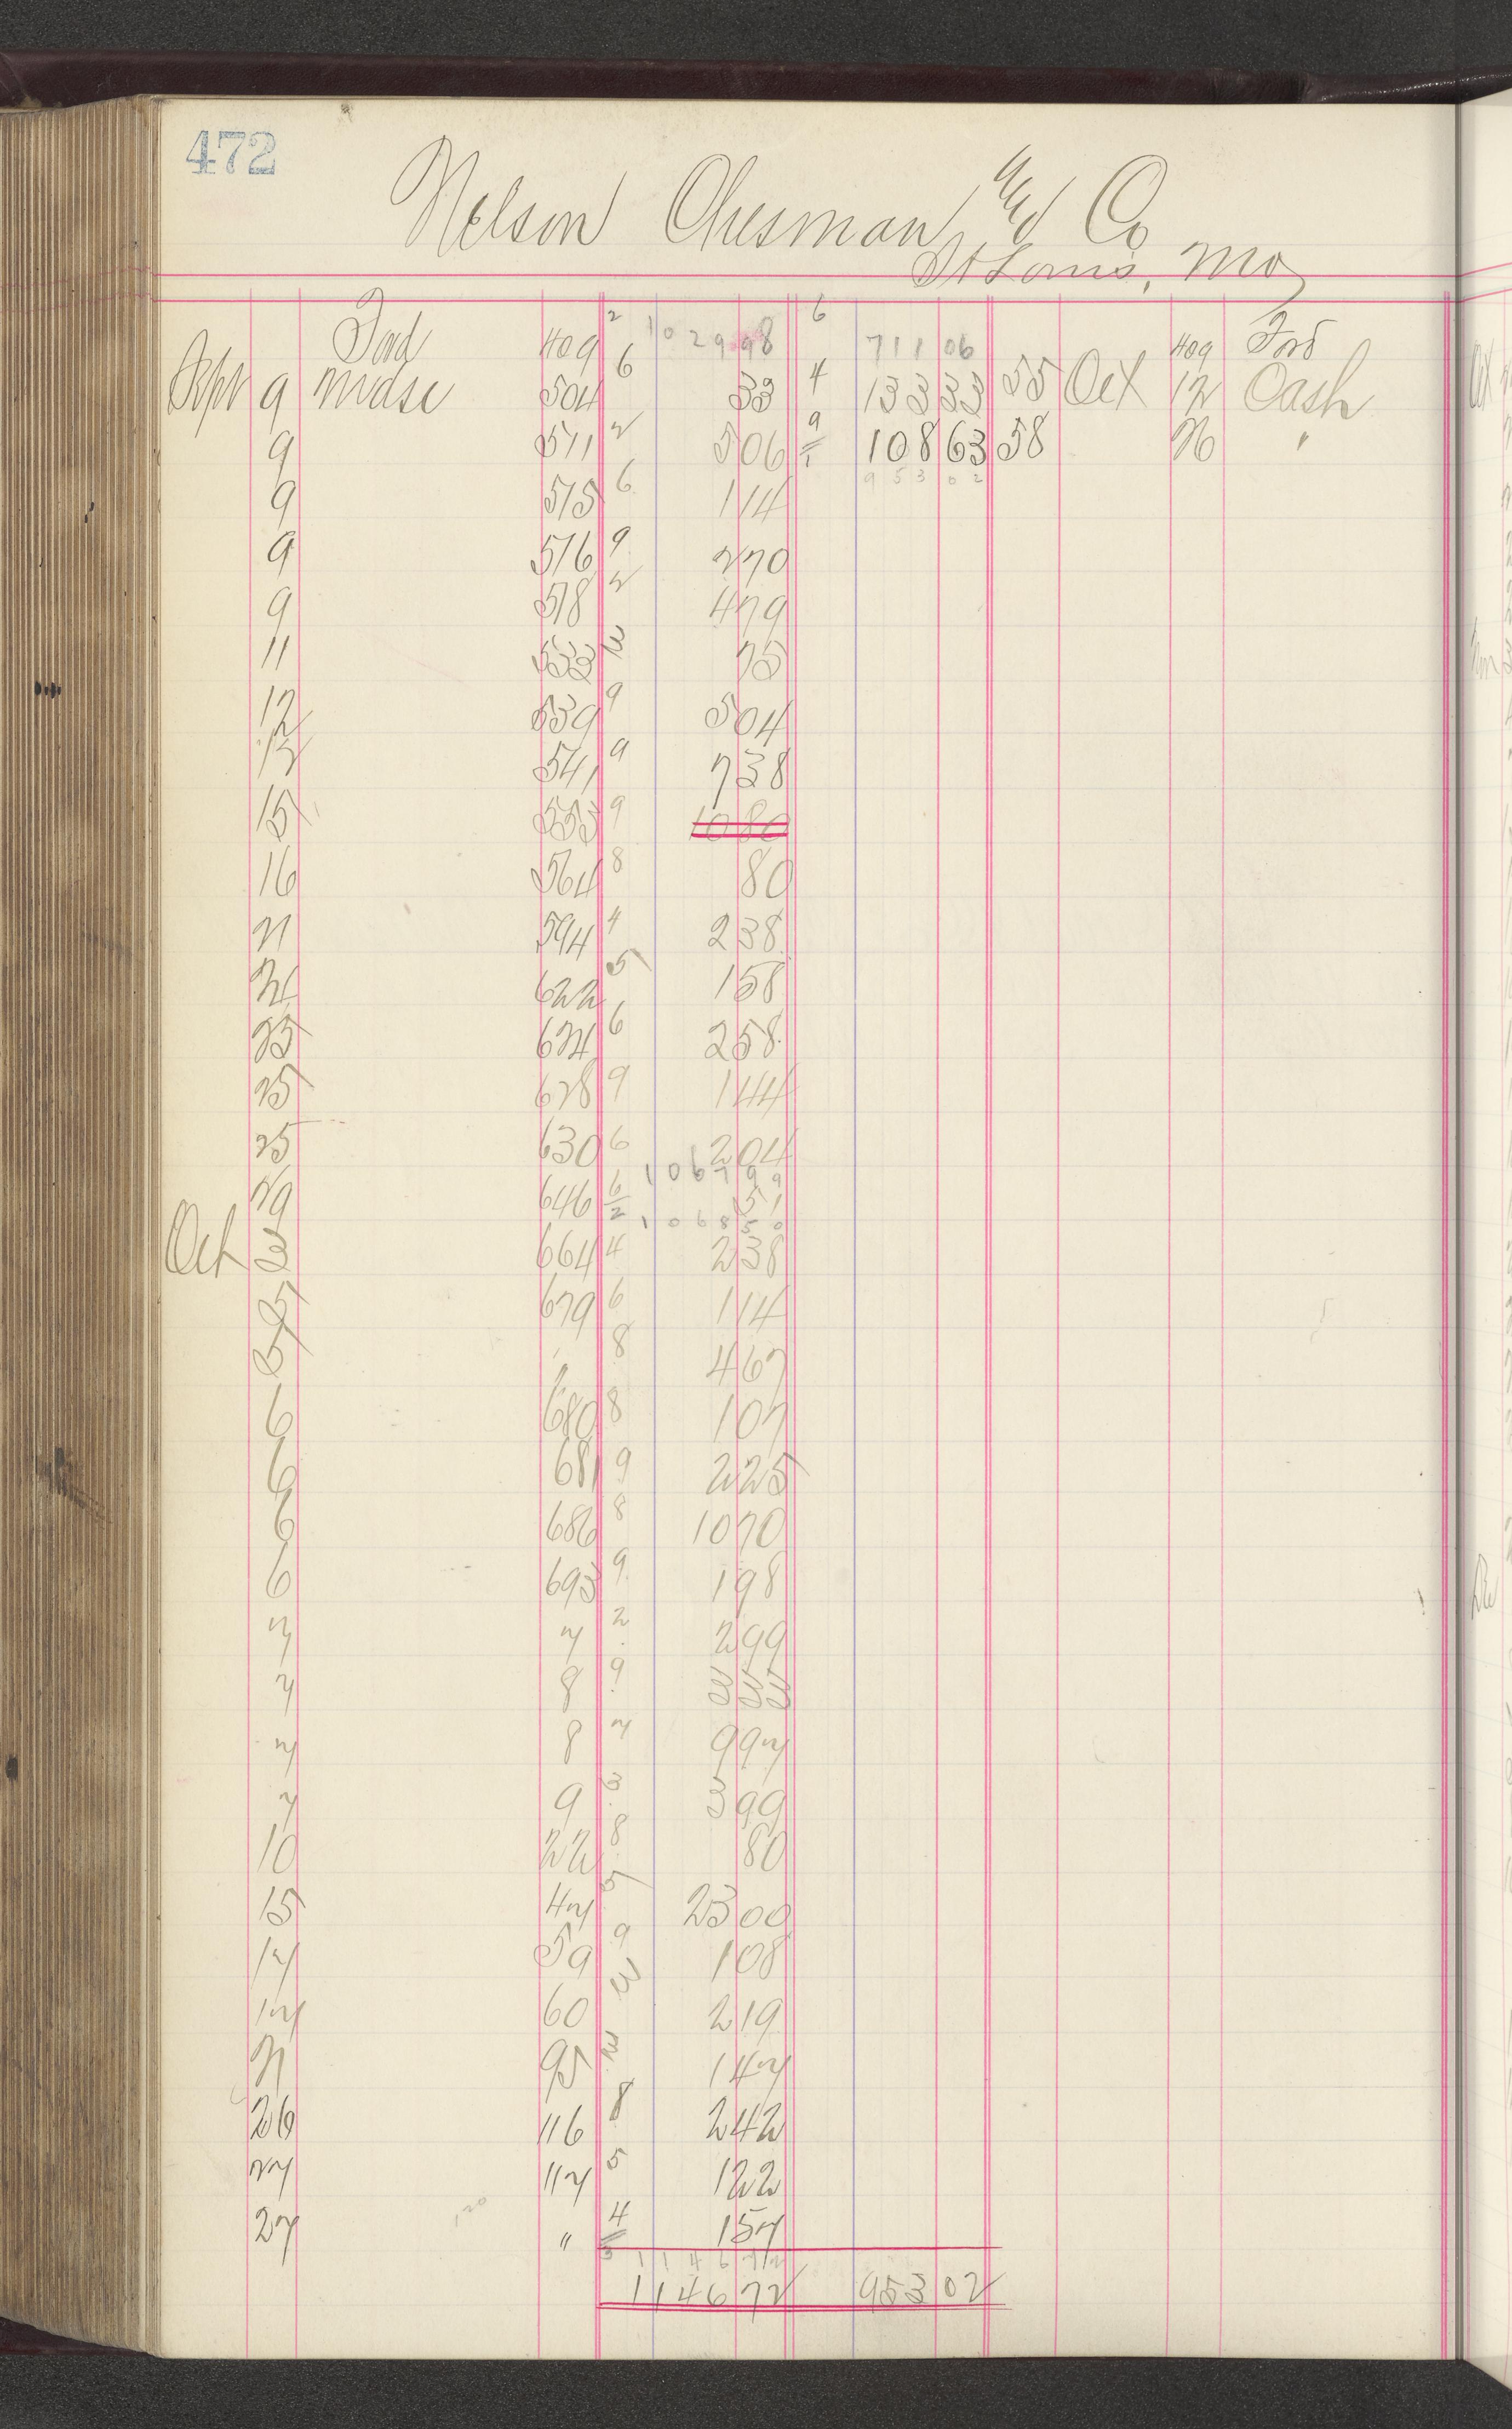 472
Nelson Chesman and Co
St Louis, Mo
Ford 409 2 1029 98 6 711 06 409 Ford
Sept 9 Mdse 504 6 33 4 133 33 55 Oct 12 Cash
9 511 2 5 06 9 108 63 58 26 "
953 02
9 515 6 1 14
9 516 9 2 70
9 518 2 4 79
11 533 3 75
12 539 9 5 04
12 541 9 7 38
15 553 9 10 80
16 564 8 80
21 594 4 2 38
24 622 5 1 58
25 624 6 2 58
25 628 9 1 44
25 630 6 2 04
1067 99
29 646 6 51
2 1068 50
Oct 3 664 4 2 38
5 679 6 1 14
5 " 8 4 67
6 680 8 1 07
6 681 9 2 25
6 686 8 10 70
6 693 9 1 98
7 7 2 2 99
7 8 9 3 33
7 8 7 9 97
7 9 3 3 99
10 22 8 80
15 47 5 23 00
17 59 9 1 08
17 60 3 2 19
21 95 2 1 47
26 116 8 2 42
27 117 5 1 22
27 " 4 1 57
3 1146 72
1146 72 953 02